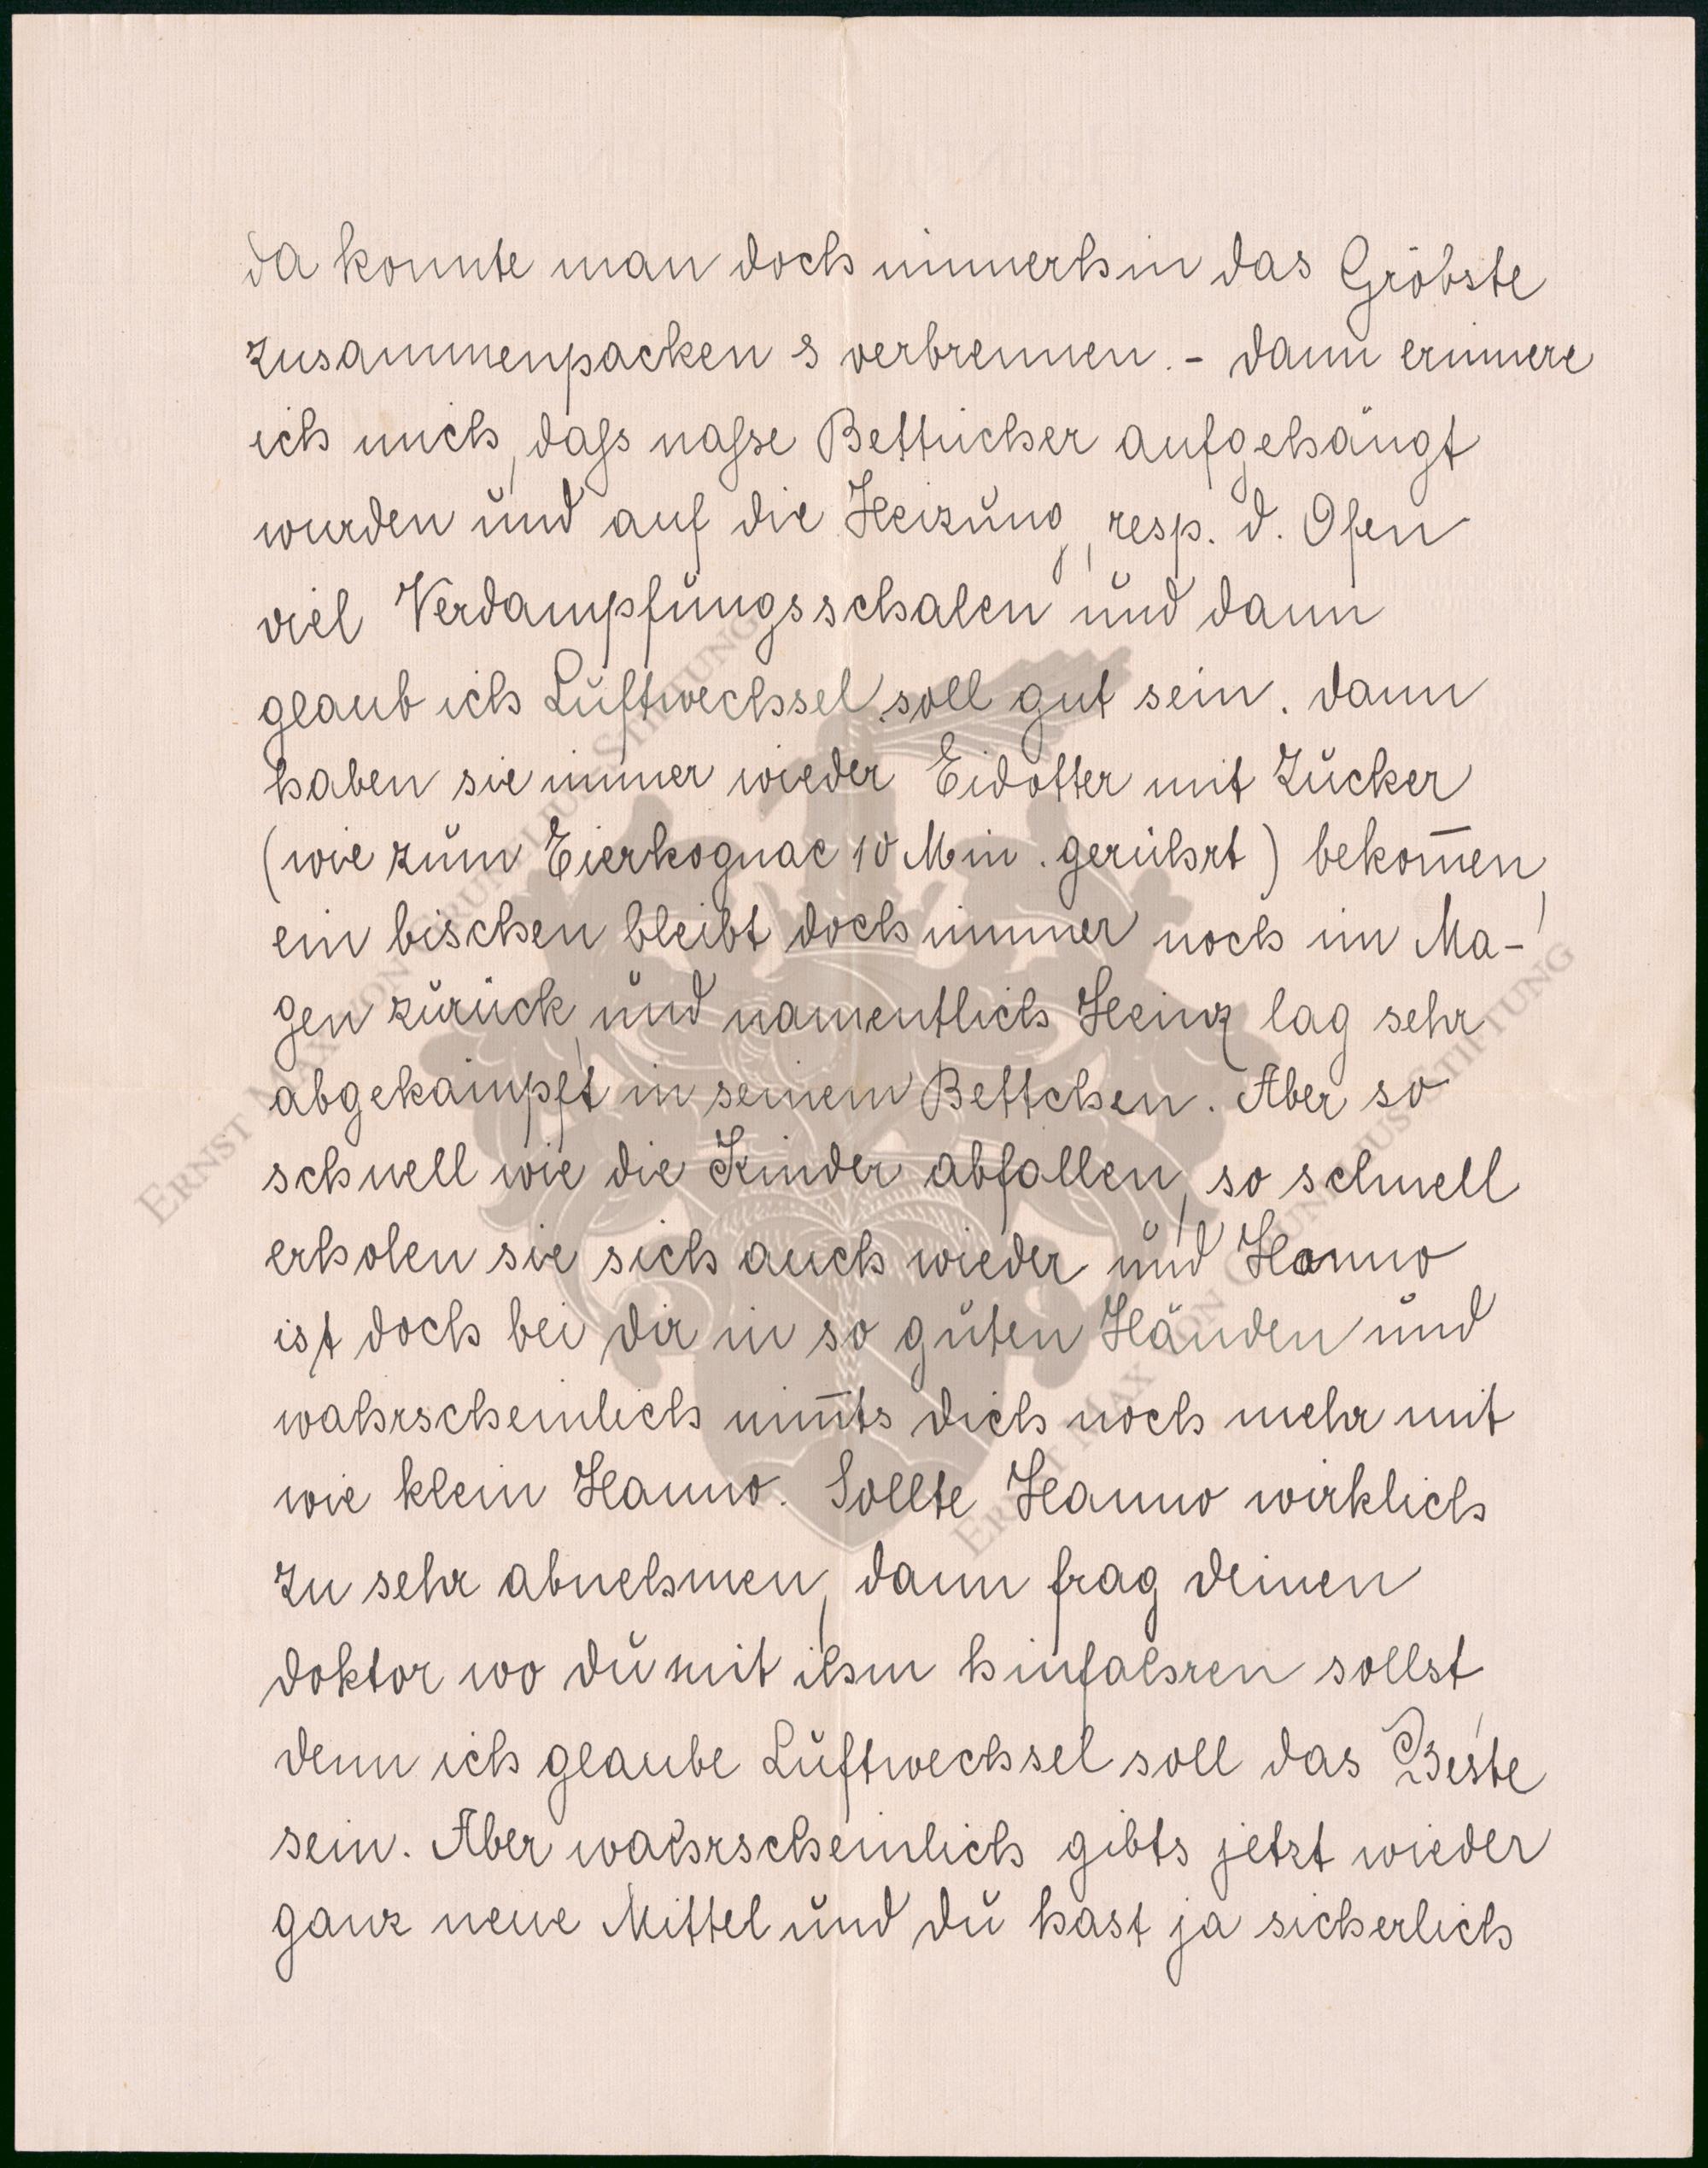 da konnte man doch immerhin das Gröbste
zusammenpacken & verbrennen. - dann erinnere
ich mich, dass nasse Bettücher aufgehängt
wurden und auf die Heizung, resp. d. Ofen
viel Verdampfungsschalen und dann
glaub ich Luftwechsel soll gut sein. dann
haben sie immer wieder Eidotter mit Zucker
(wie zum Eierkognac 10 Min. gerührt) bekom̅en,
ein bischen bleibt doch immer noch im Ma-
gen zurück, und namentlich Heinz lag sehr
abgekämpft in seinem Bettchen. Aber so
schnell wie die Kinder abfallen, so schnell
erholen sie sich auch wieder und Hanno
ist doch bei dir in so guten Händen und
wahrscheinlich nim̅ts dich noch mehr mit
wie klein Hanno. Sollte Hanno wirklich
zu sehr abnehmen, dann frag deinen
doktor wo du mit ihm hinfahren sollst,
denn ich glaube Luftwechsel soll das Beste
sein. Aber wahrscheinlich gibts jetzt wieder
ganz neue Mittel und du hast ja sicherlich
ERNST MAX VON GRUNELIUS STIFTUNG
ERNST MAX VON GRUNELIUS STIFTUNG